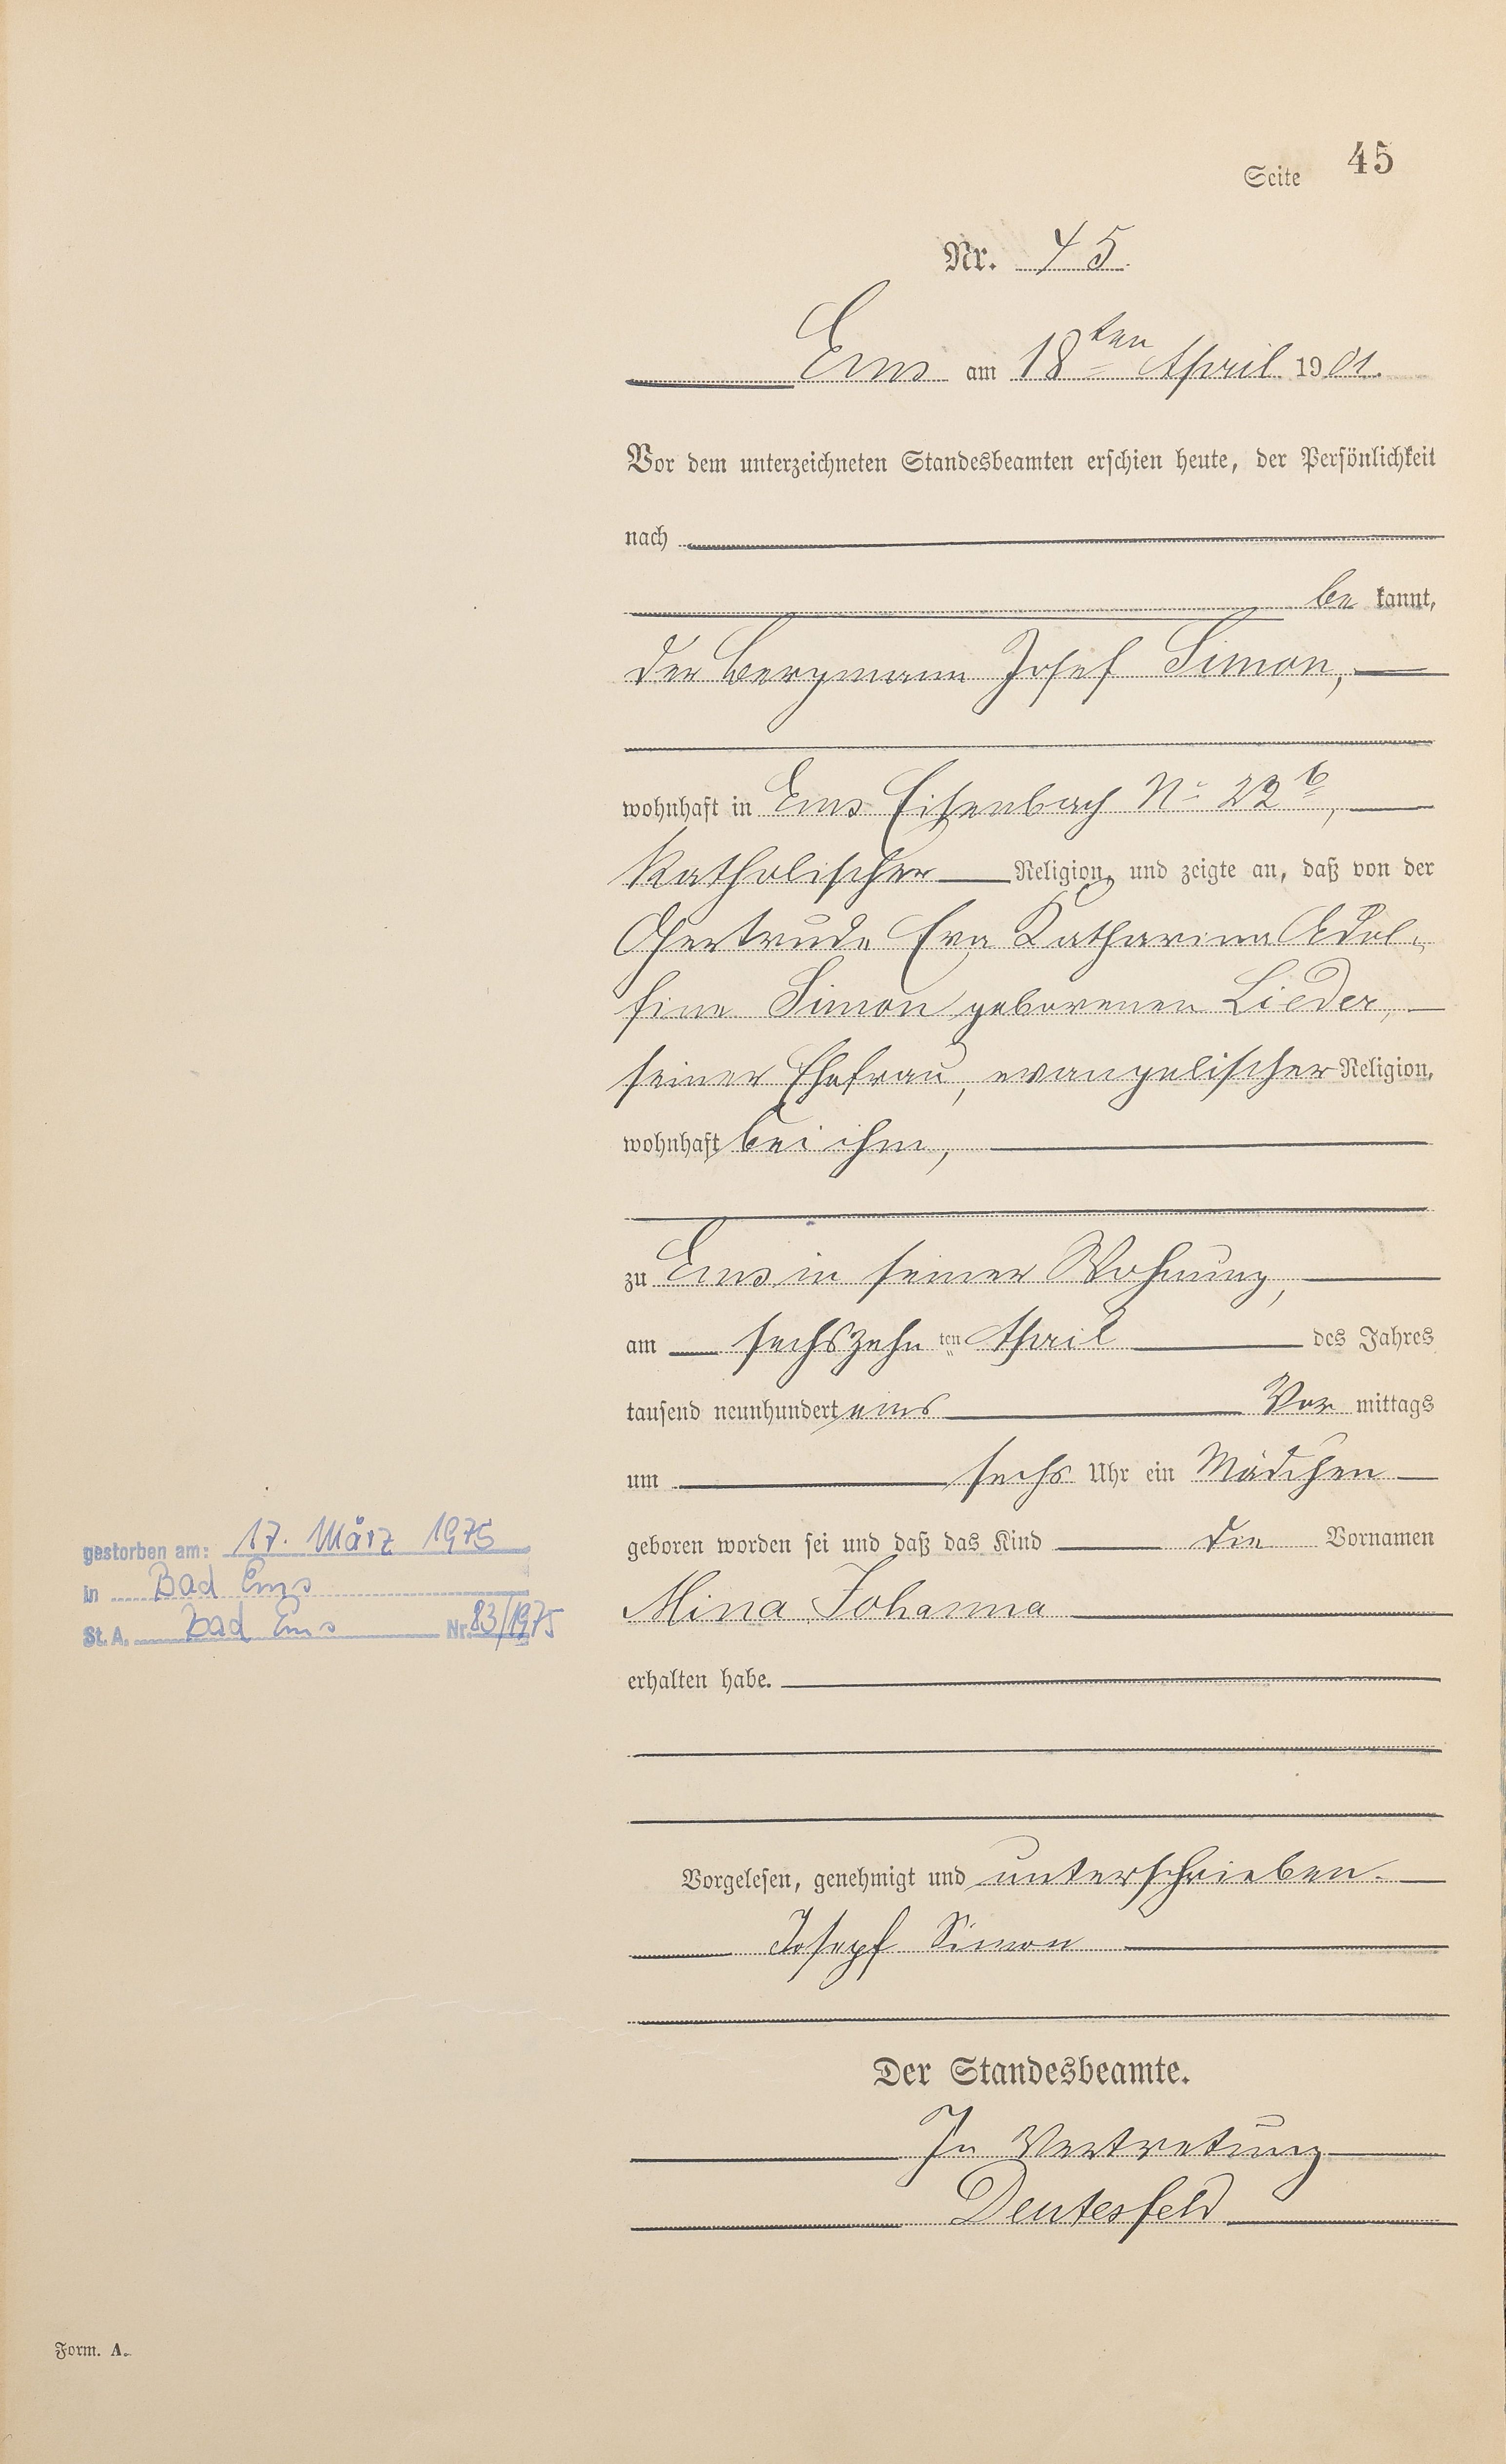 Seite 45
Nr. 45.
Ems am 18ten April 1901.
Vor dem unterzeichneten Standesbeamten erschien heute, der Persönlichkeit
nach
be kannt,
der Bergmann Josef Simon,
wohnhaft in Ems Eisenbach No 22b,
katholischer Religion, und zeigte an, daß von der
Gertrude Eva Katharina Adol-
fine Simon geborenen Lieder,
seiner Ehefrau, evangelischer Religion,
wohnhaft bei ihm,
zu Ems in seiner Wohnung,
am sechszehn ten April des Jahres
tausend neunhundert eins Vor mittags
um sechs Uhr ein Mädchen
geboren worden sei und daß das Kind die Vornamen
gestorben am: 17. März 1975
in Bad Ems
St. A. Bad Ems Nr. 83/1975
Mina Johanna
erhalten habe.
Vorgelesen, genehmigt und unterschrieben.
Josepf Simon
Der Standesbeamte.
In Vertretung
Deutesfeld
Form. A.